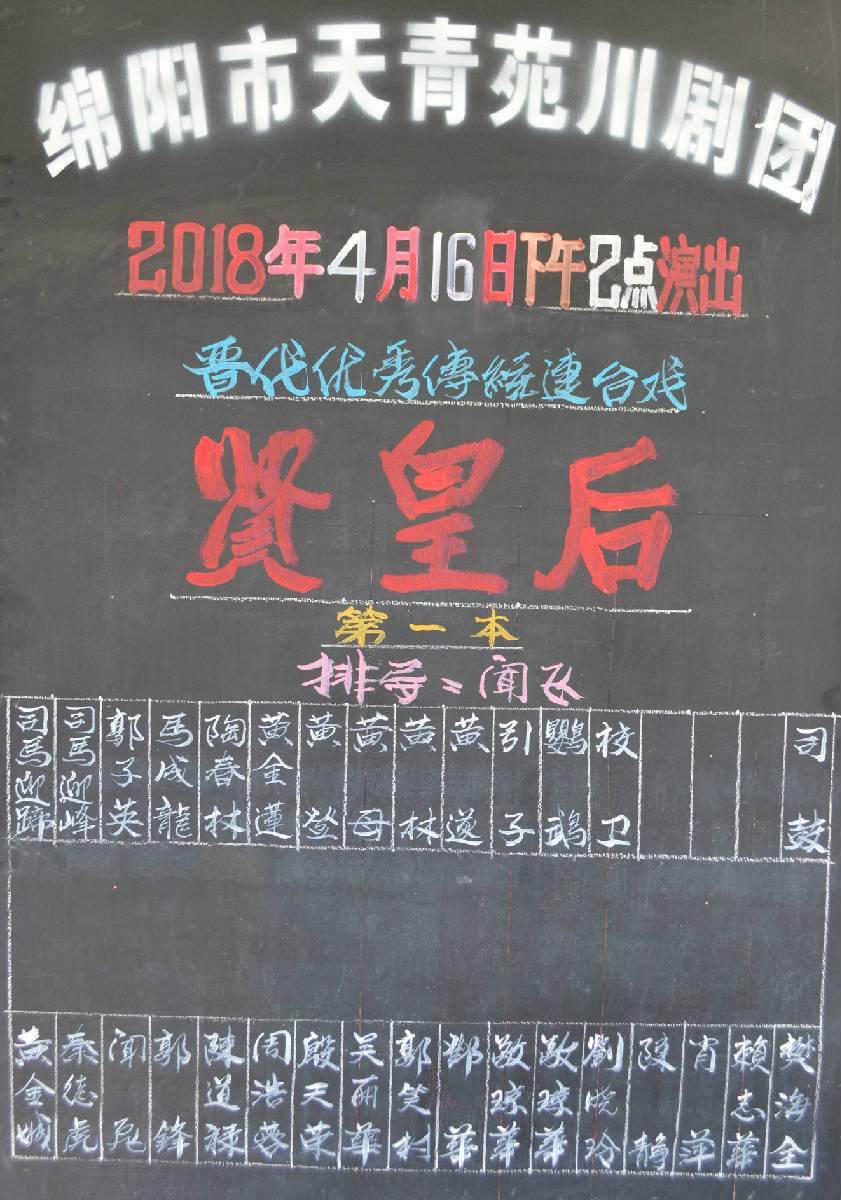 绵阳市天青苑川剧团
2018年4月16日下午2点演出
晋代优秀傳統連台戏
贤皇后
第一本
排导：闻飞
司馬迎蹄
司馬迎峰
郭子英
馬成龍
陶春林
黄金蓮
黄登
黄母
黄林
黄遂
引子
鹦鵡
校卫
司鼓
黄金城
秦德虎
闻飛
郭鋒
陳道禄
周浩蓉
殷天荣
吴丽華
郭笑利
鄧華
敬琼華
敬琼華
劉晓玲
陳静
肖萍
賴志華
樊海全